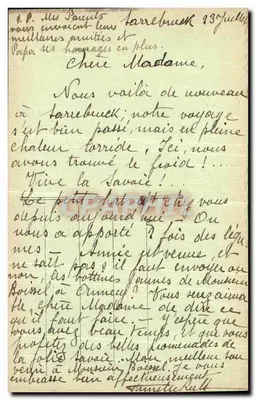 S.P. Mes Parents
vous envoient leurs
meilleures amitiés et
Papa ses hommages en plus.
Sarrebruck 23 juillet
Chère Madame,
Nous voilà de nouveau
à Sarrebruck; notre voyage
s'est bien passé, mais en pleine
chaleur torride, Ici, nous
avons trouvé le froid! ...
Vive la Savoie! ...
Le petit fort chez vous
depuis aujourd'hui - On
nous a apporté 2 fois des légu
mes - Année est venue, et
ne sait pas s'il faut envoyer ou
non, les bottines jaunes de Monsieur
Boissel à Annecy? Vous seriez aima
ble, chère Madame de dire ce
qu'il faut faire. - J'espère que
vous avez beau temps, et que vous
profitez des belles promenades de
la jolie Savoie. Mon meilleur sou
venir à Monsieur Boissel. Je vous
embrasse bien affectueusement